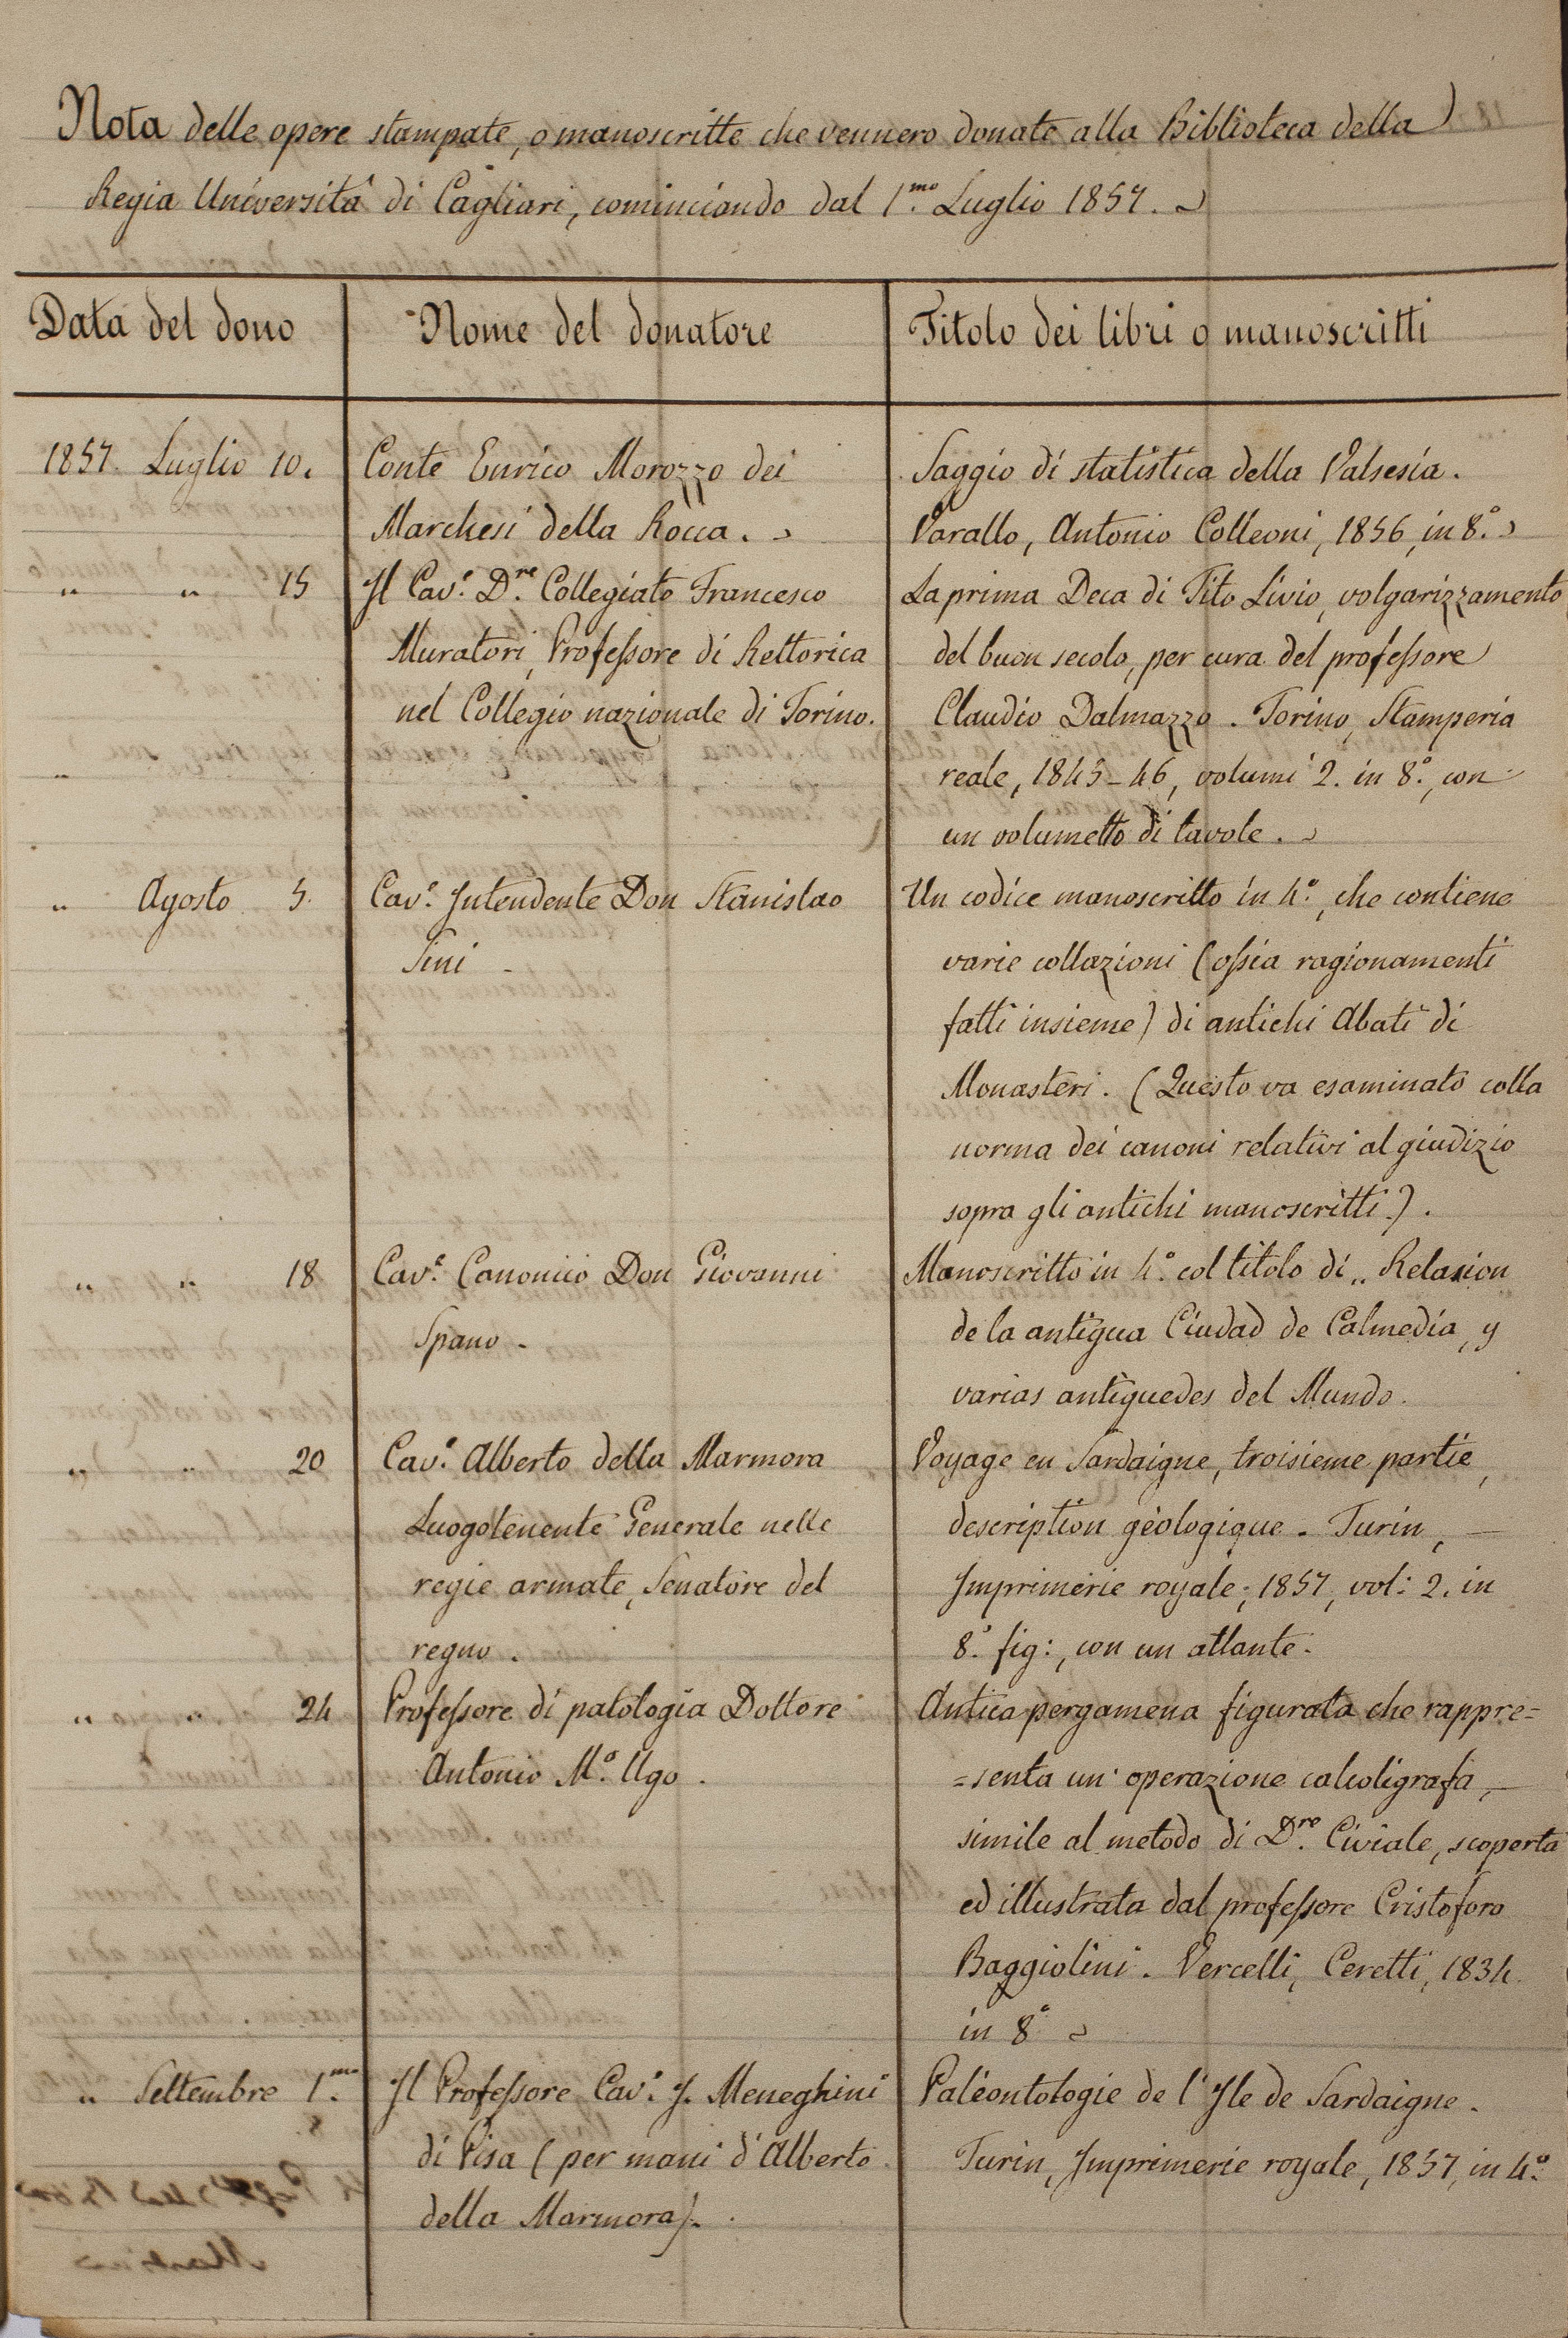 Nota delle opere stampate, o manoscritte che vennero donate alla Biblioteca della
Regia Università di Cagliari, cominciando dal 1.mo Luglio 1857.
Data del dono
Nome del donatore
Titolo dei libri o manoscritti
1857. Luglio 10.
Conte Enrico Morozzo dei
Marchesi della Rocca.
Saggio di statistica della Valsesia.
Varallo, Antonio Colleoni, 1856, in 8.°
" " 15
Il Cav.e D.re Collegiato Francesco
Muratori, Professore di Rettorica
nel Collegio nazionale di Torino.
La prima Deca di Tito Livio, volgarizzamento
del buon secolo, per cura del professore
Claudio Dalmazzo. Torino, Stamperia
reale, 1845-46, volumi 2. in 8.°, con
un volumetto di tavole.
" Agosto 5.
Cav.e Intendente Don Stanislao
Sini -
Un codice manoscritto in 4.°, che contiene
varie collazioni (ossia ragionamenti
fatti insieme) di antichi Abati di
Monasteri. (Questo va esaminato colla
norma dei canoni relativi al giudizio
sopra gli antichi manoscritti.).
" " 18
Cav.e Canonico Don Giovanni
Spano -
Manoscritto in 4.° col titolo di " Relasion
de la antigua Ciudad de Calmedia, y
varias antiguedes del Mundo.
" " 20
Cav.e Alberto della Marmora
Luogotenente Generale nelle
regie armate, Senatore del
regno.
Voyage en Sardaigne, troisieme partie,
description géologique. Turin, -
Imprimerie royale, 1857, vol: 2. in
8.° fig:, con un atlante.
" " 24
Professore di patologia Dottore
Antonio M.° Ugo.
Antica pergamena figurata che rappre=
=senta un' operazione calcoligrafa, -
simile al metodo di D.re Civiale, scoperta
ed illustrata dal professore Cristoforo
Baggiolini. Vercelli, Ceretti, 1834.
in 8°
" Settembre 1.mo
Il Professore Cav.e J. Meneghini
di Pisa (per mani d'Alberto
della Marmora).
Paléontologie de l'Ile de Sardaigne.
Turin, Imprimerie royale, 1857, in 4.°